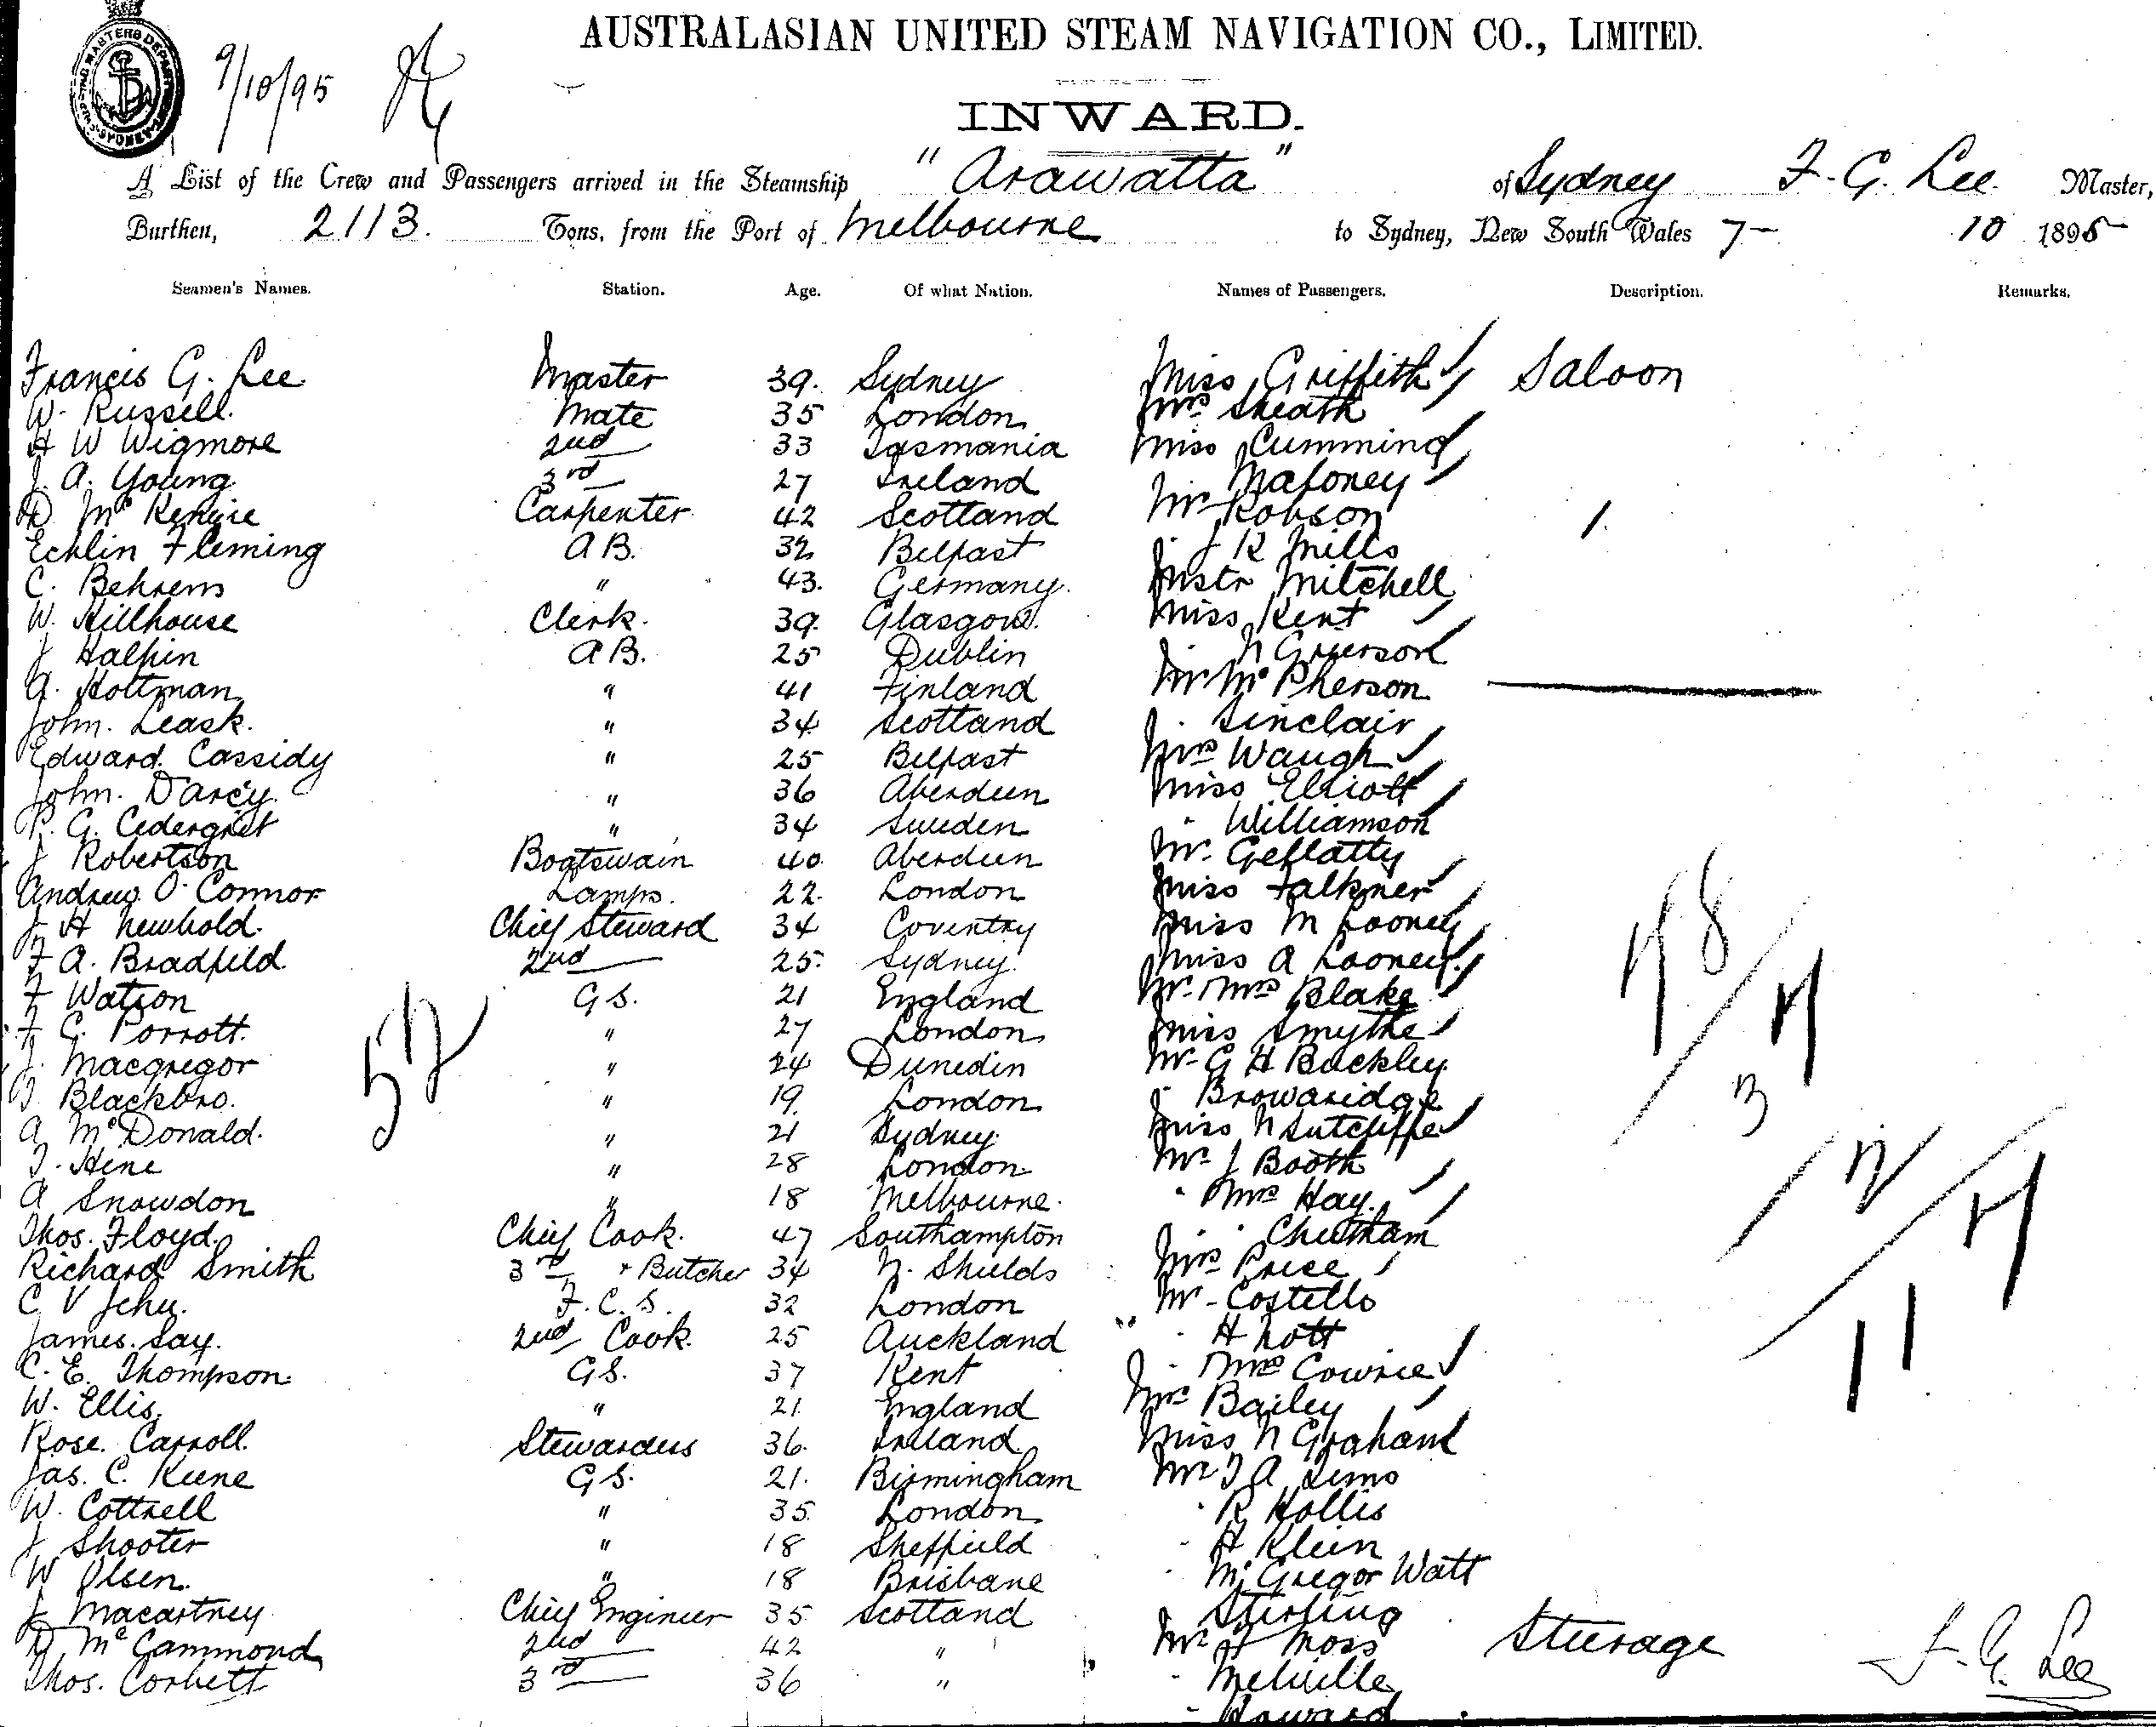 AUSTRALASIAN UNITED STEAM NAVIGATION CO., LIMITED.
9/10/95
INWARD.
A List of the Crew and Passengers arrived in the Steamship "Arawatta" of Sydney F. G. Lee Master,
Burthen, 2113. Tons, from the Port of Melbourne to Sydney, New South Wales 7- 10 1895
Seamen's Names. Station. Age. Of what Nation. Names of Passengers. Description. Remarks.
Francis G. Lee Master 39. Sydney Miss Griffith Saloon
W. Russell. Mate 35 London Mrs Sheath
H W Wigmore 2nd 33 Tasmania Miss Cumming
J. A. Young 3rd 27 Ireland Mahoney
D McKenzie Carpenter 42 Scotland Mr Robson 1.
Echlin Fleming A B. 32 Belfast J R Mills
C. Behrens " 43. Germany. Mstr Mitchell
W. Hillhouse Clerk. 39. Glasgow. Miss Kent
J Halpin A B. 25 Dublin N Grierson
A. Holtman " 41 Finland Mr McPherson
John. Leask. " 34 Scotland Sinclair
Edward. Cassidy " 25 Belfast Mrs Waugh
John. D'arcy. " 36 Aberdeen Miss Elliott
P. G. Cedergret " 34 Sweden " Williamson
J Robertson Boatswain 40. Aberdeen Mr. Geflatty
Andrew O'Connor Lamps. 22. London Miss Falkner
J H Newbold. Chief Steward 34 Coventry Miss M Looney
F A. Bradfield. 2nd 25. Sydney. Miss A Looney.
F Watson G S. 21 England Mr. Mrs Blake
F C. Porrott. " 27 London Miss Smythe
J. Macgregor " 24 Dunedin Mr G H Buckley
Blackbro. " 19. London Browaridge
A McDonald. " 21 Sydney. Miss N Sutcliffe
J. Hine " 28 London Mr J Booth
A Snowdon " 18 Melbourne. " Mrs Hay.
Thos. Floyd. Chief Cook. 47 Southampton " Cheetham
Richard Smith 3rd + Butcher 34 N. Shields Mrs Price
C V Jehu. F. C. S. 32 London Mr - Costello
James. Say. 2nd Cook. 25 Auckland H Nott
C. E. Thompson. G S. 37 Kent " Mrs Cowrie
W. Ellis. " 21. England Mrs Bailey
Rose. Carroll. Stewardess 36. Ireland Miss N Graham
Jas. C. Keene G S. 21. Birmingham Mr J A Sims
W. Cottrell " 35. London R Hollis
J Shooter " 18 Sheffield H Klein
W Olsen. " 18 Brisbane McGregor Watt
J Macartney Chief Engineer 35 Scotland Stirling
D McCammond 2nd 42 " Mr H Moss Steerage
Thos. Corbett 3rd 36 " - Melville F. G. Lee
- Howard